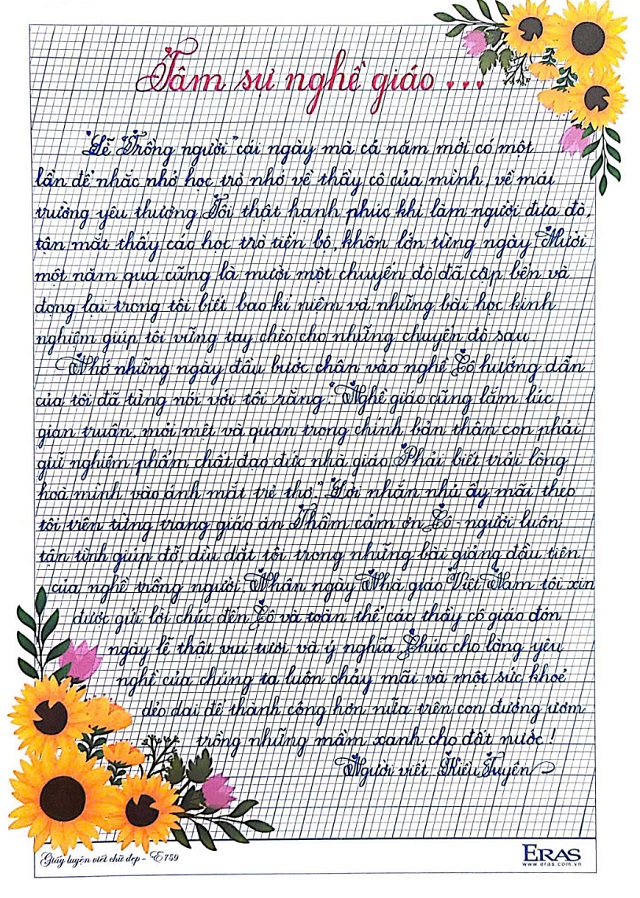 Tâm sự nghề giáo ...
"Lễ Trồng người" cái ngày mà cả năm mới có một
lần để nhắc nhở học trò nhớ về thầy, cô của mình, về mái
trường yêu thương. Tôi thật hạnh phúc khi làm người đưa đò,
tận mắt thấy các học trò tiến bộ, khôn lớn từng ngày. Mười
một năm qua cũng là mười một chuyến đò đã cập bến và
đọng lại trong tôi biết bao kỉ niệm và những bài học kinh
nghiệm giúp tôi vững tay chèo cho những chuyến đò sau.
Nhớ những ngày đầu bước chân vào nghề. Cô hướng dẫn
của tôi đã từng nói với tôi rằng: "Nghề giáo cũng lắm lúc
gian truân, mỏi mệt và quan trọng chính bản thân con phải
giữ nghiêm phẩm chất đạo đức nhà giáo. Phải biết trải lòng
hoà mình vào ánh mắt trẻ thơ." Lời nhắn nhủ ấy mãi theo
tôi trên từng trang giáo án. Thầm cảm ơn Cô - người luôn
tận tình giúp đỡ, dìu dắt tôi trong những bài giảng đầu tiên
của nghề trồng người. Nhân ngày Nhà giáo Việt Nam tôi xin
được gửi lời chúc đến Cô và toàn thể các thầy cô giáo đón
ngày lễ thật vui tươi và ý nghĩa. Chúc cho lòng yêu
nghề của chúng ta luôn cháy mãi và một sức khoẻ
dẻo dai để thành công hơn nữa trên con đường ươm
trồng những mầm xanh cho đất nước!
Người viết Kiều Tuyên
Giấy luyện viết chữ đẹp - E159
ERAS
www.eras.com.vn